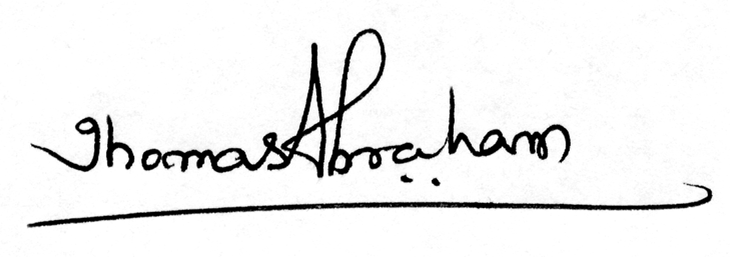 Thomas Abraham